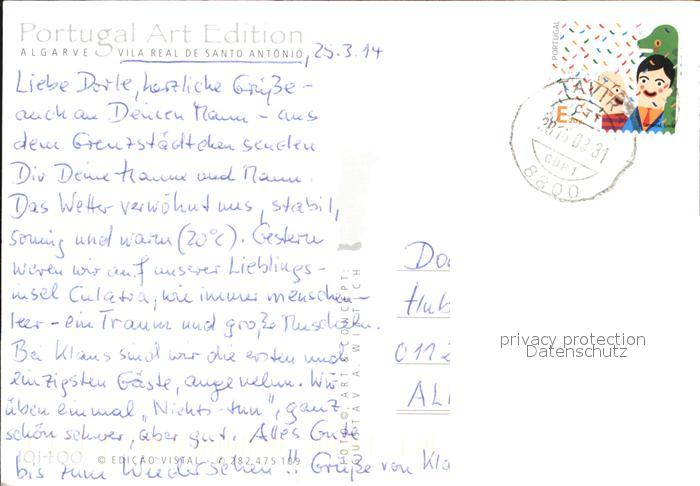 Portugal Art Edition
ALGARVE VILA REAL DE SANTO ANTÓNIO, 25.3.14
Liebe Dorle, herzliche Grüße -
auch an Deinen Mann - aus
dem Grenzstädtchen senden
Dir Deine Hanne und Mann.
Das Wetter verwöhnt uns, stabil,
sonnig und warm (20°C). Gestern
waren wir auf unserer Lieblings-
insel Culatra, wie immer menschen-
leer - ein Traum und große Muscheln.
Bei Klaus sind wir die ersten und
einzigsten Gäste, angenehm. Wir
üben einmal „Nichts-tun", ganz
schön schwer, aber gut. Alles Gute
bis zum Wiedersehen!! Grüße von Kla
101400 © EDIÇÃO VISTAL - ✆ 282 475 109
FOTO © ART & CONCEPT:
GUSTAV A. WITTICH
PORTUGAL
E
TAVIRA
2014.03.31
8800
Do
Hub
0112
AL
privacy protection
Datenschutz